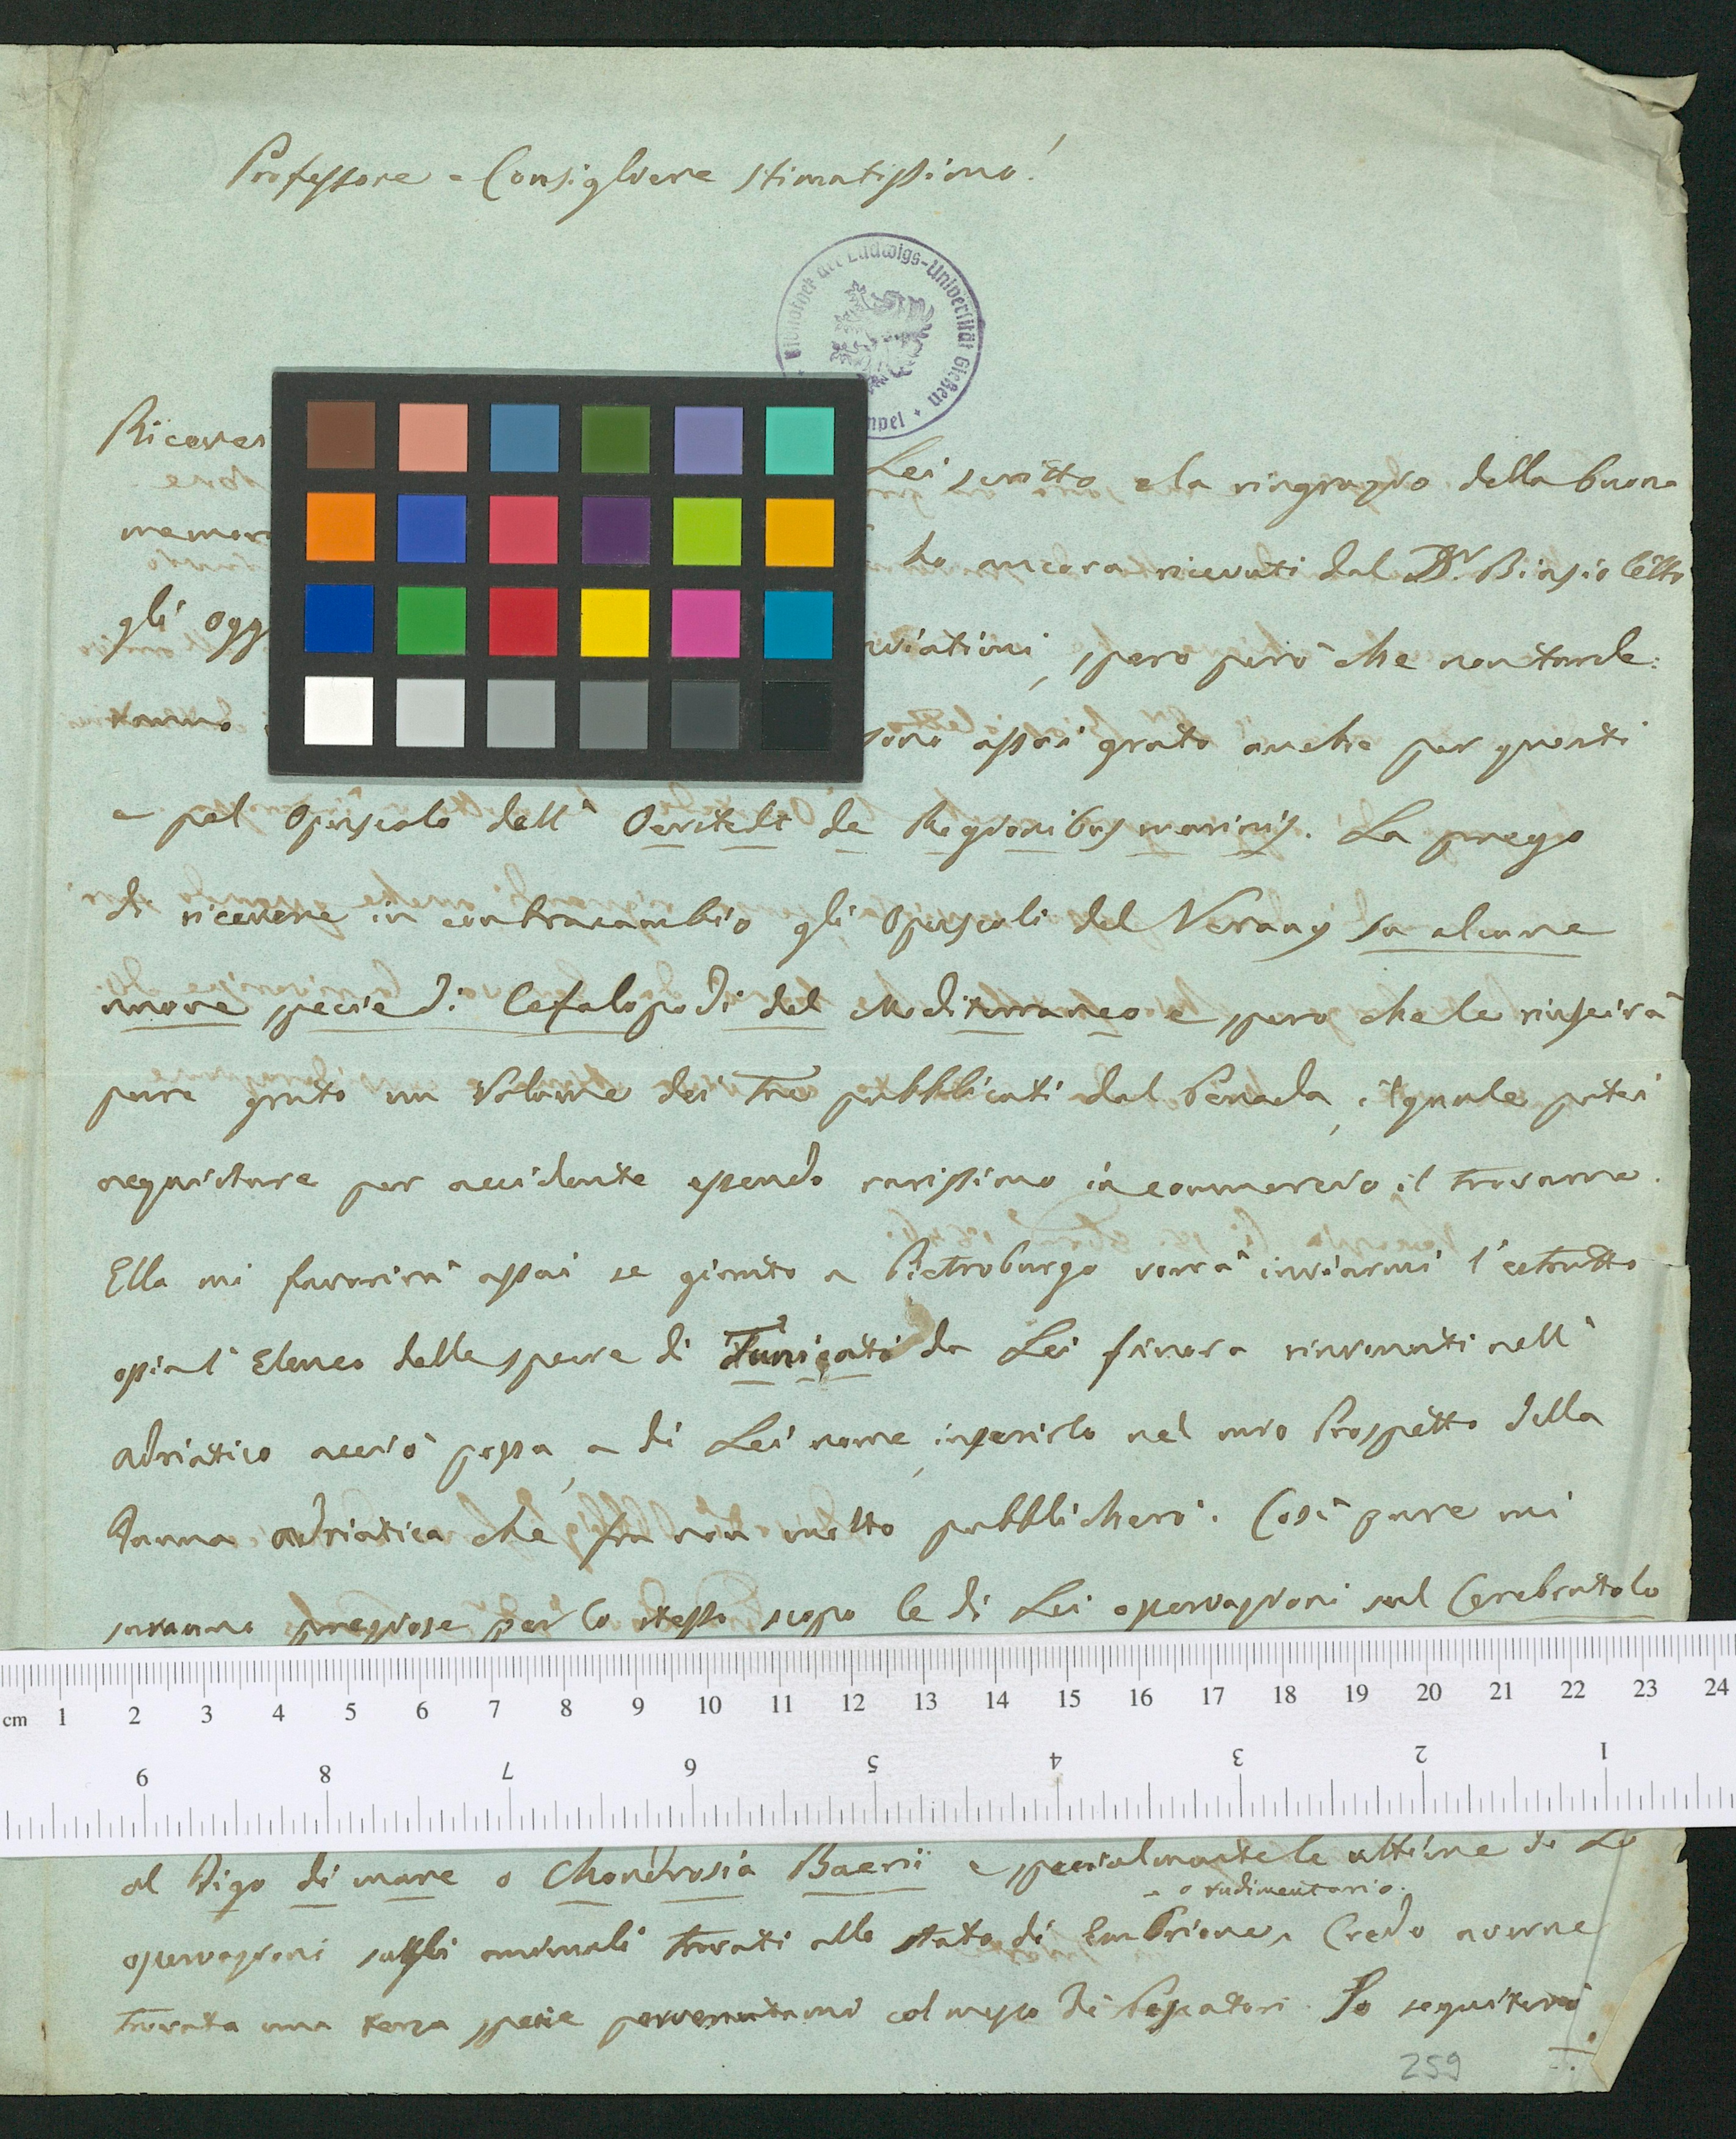 Professore e Consigliere stimatissimo!
Bibliothek der Ludwigs-Universität Gießen
Lei scritto e la ringrazio della buona
ho ancora ricevuti dal Dr. Biasoletto
gli
inviatimi, spero però che non tarde:
ranno
sono assai grato anche per questi
e pel Opuscolo dell' Oersteds de Regionibus marinis. La prego
di ricevere in contracambio gli Opuscoli del Verany su alcune
nuove specie di Cefalopodi del Mediterraneo e spero che le riuscirà
pure grato un Volume dei tre pubblicati dal Penada, il quale potei
acquistare per accidente essendo rarissimo in commercio il trovarne.
Ella mi favorirà assai se giunto a Pietroburgo vorrà inviarmi l'estratto
ossia l' Elenco delle specie di Tunicati da Lei finora rinvenuti nell'
Adriatico acciò possa, a di Lei nome, inserirlo nel mio Prospetto della
Fauna Adriatica che fra non molto pubblicherò. Così pure mi
saranno preziose per lo stesso scopo le di Lei osservazioni sul Cerebratolo
cm 1 2 3 4 5 6 7 8 9 10 11 12 13 14 15 16 17 18 19 20 21 22 23 24
9 8 7 6 5 4 3 2 1
al Figo di mare o Chondrosia Baerii e specialmente le ultime di Lei
o rudimentario.
osservazioni sugli animali trovati allo stato di Embrione. Credo averne
trovata una terza specie pervenutami col mezzo di Pescatori. Io seguiterò
259